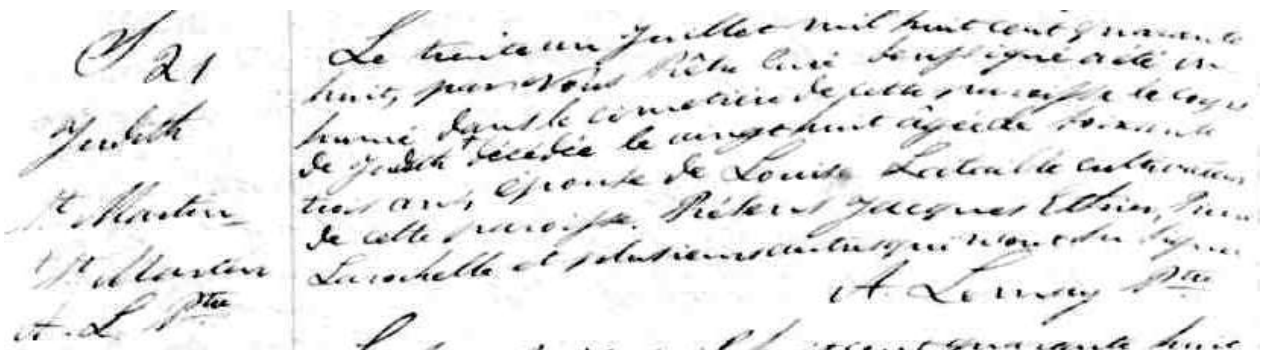 S 21
Judith
St. Martin
† St. Martin
A. L. Ptre
Le trente un Juillet mil huit cent quarante
huit, par Nous Prêtre Curé soussigné a été in
humé dans le cimetière de cette paroisse le corps
de Judith † décédée le vingt huit âgée de soixante
trois ans épouse de Louis Lataille cultivateur
de cette paroisse. Présens Jacques Ethier,
Larochelle et plusieurs autres qui n'ont su signer
A. Ptre
cent quarante huit